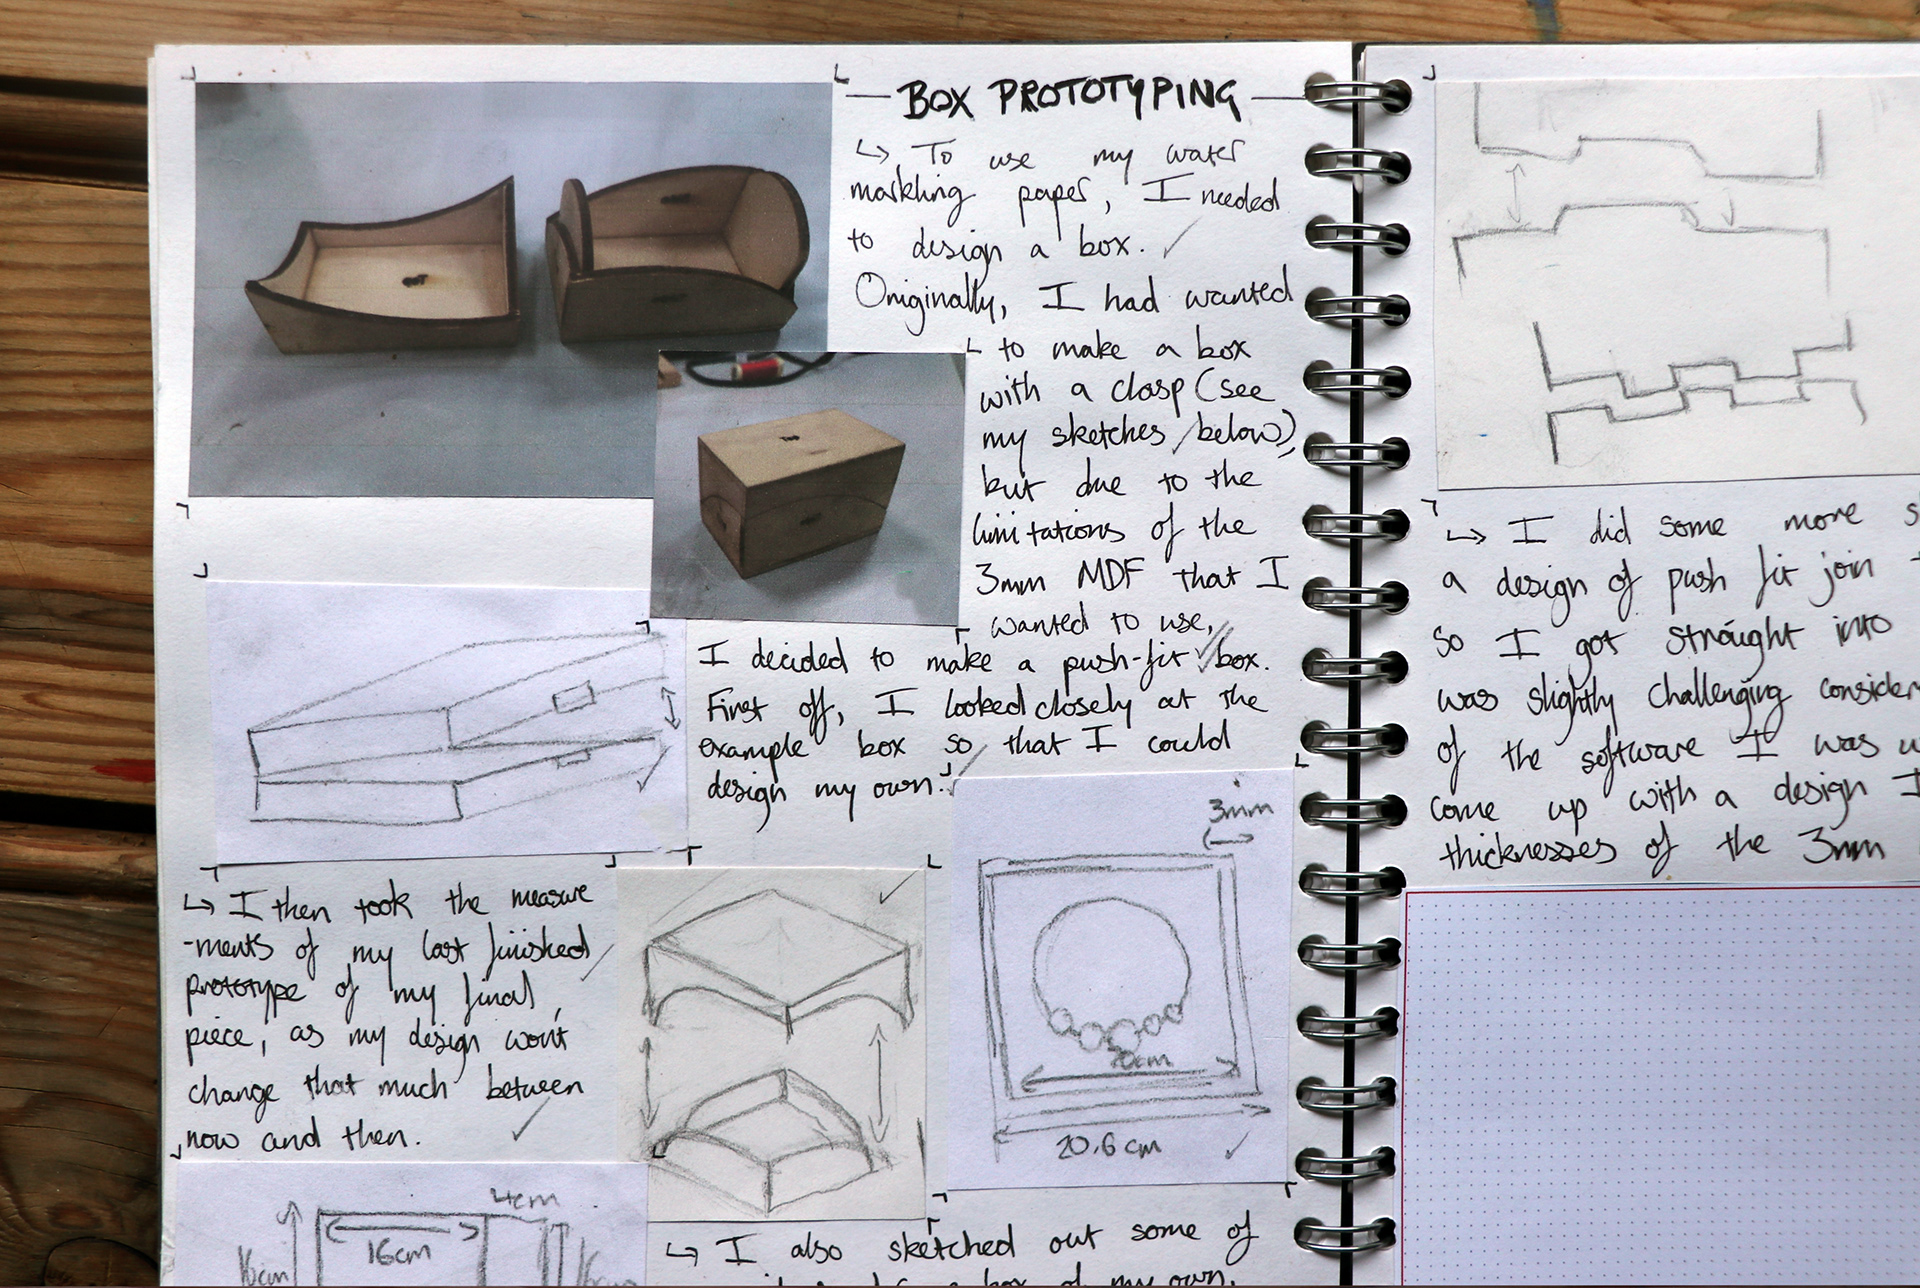 BOX PROTOTYPING
↳ To use my water
markling paper, I needed
to design a box.
Originally, I had wanted
to make a box
with a clasp (see
my sketches below),
but due to the
limitations of the
3mm MDF that I
wanted to use,
I decided to make a push-fit box.
First off, I looked closely at the
example box so that I could
design my own.
↳ I then took the measure
-ments of my last finished
prototype of my final
piece, as my design won't
change that much between
now and then.
3mm
20cm
20.6 cm
4cm
16cm
16cm
↳ I also sketched out some of
box of my own.
↳ I did some more
a design of push fit join
so I got straight into
was slightly challenging
of the software I was
come up with a design I
thicknesses of the 3mm